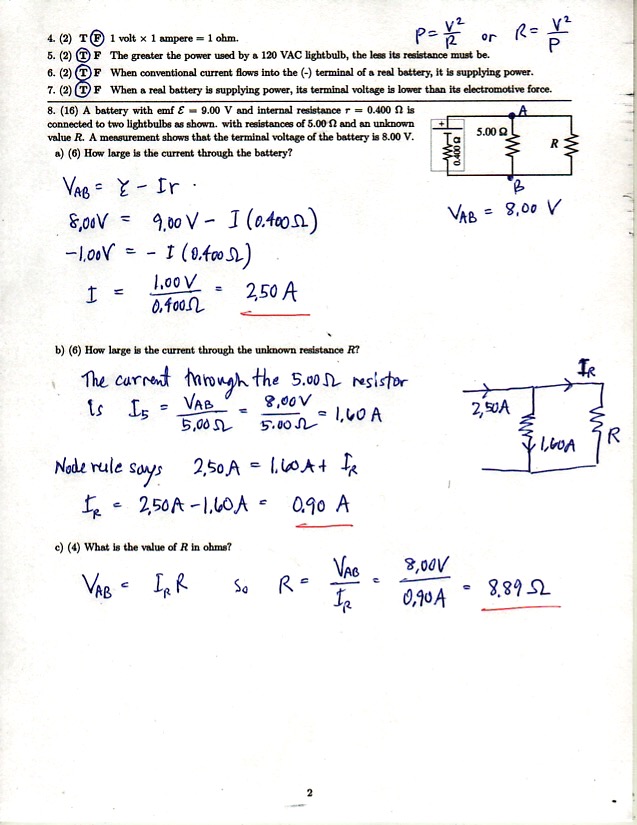 4. (2) T F 1 volt × 1 ampere = 1 ohm.
P = V²/R or R = V²/P
5. (2) T F The greater the power used by a 120 VAC lightbulb, the less its resistance must be.
6. (2) T F When conventional current flows into the (-) terminal of a real battery, it is supplying power.
7. (2) T F When a real battery is supplying power, its terminal voltage is lower than its electromotive force.
8. (16) A battery with emf ℰ = 9.00 V and internal resistance r = 0.400 Ω is
connected to two lightbulbs as shown. with resistances of 5.00 Ω and an unknown
value R. A measurement shows that the terminal voltage of the battery is 8.00 V.
A
+
0.400 Ω
5.00 Ω
R
B
V_AB = 8,00 V
a) (6) How large is the current through the battery?
V_AB = ℰ - Ir.
8,00V = 9,00V - I (0.400Ω)
-1,00V = - I (0.400Ω)
I = 1,00V/0,400Ω = 2,50 A
b) (6) How large is the current through the unknown resistance R?
The current through the 5.00Ω resistor
is I₅ = V_AB/5,00Ω = 8,00V/5.00Ω = 1,60 A
I_R
2,50A
1,60A
R
Node rule says 2,50A = 1,60A + I_R
I_R = 2,50A - 1,60A = 0.90 A
c) (4) What is the value of R in ohms?
V_AB = I_R R so R = V_AB/I_R = 8,00V/0,90A = 8.89 Ω
2